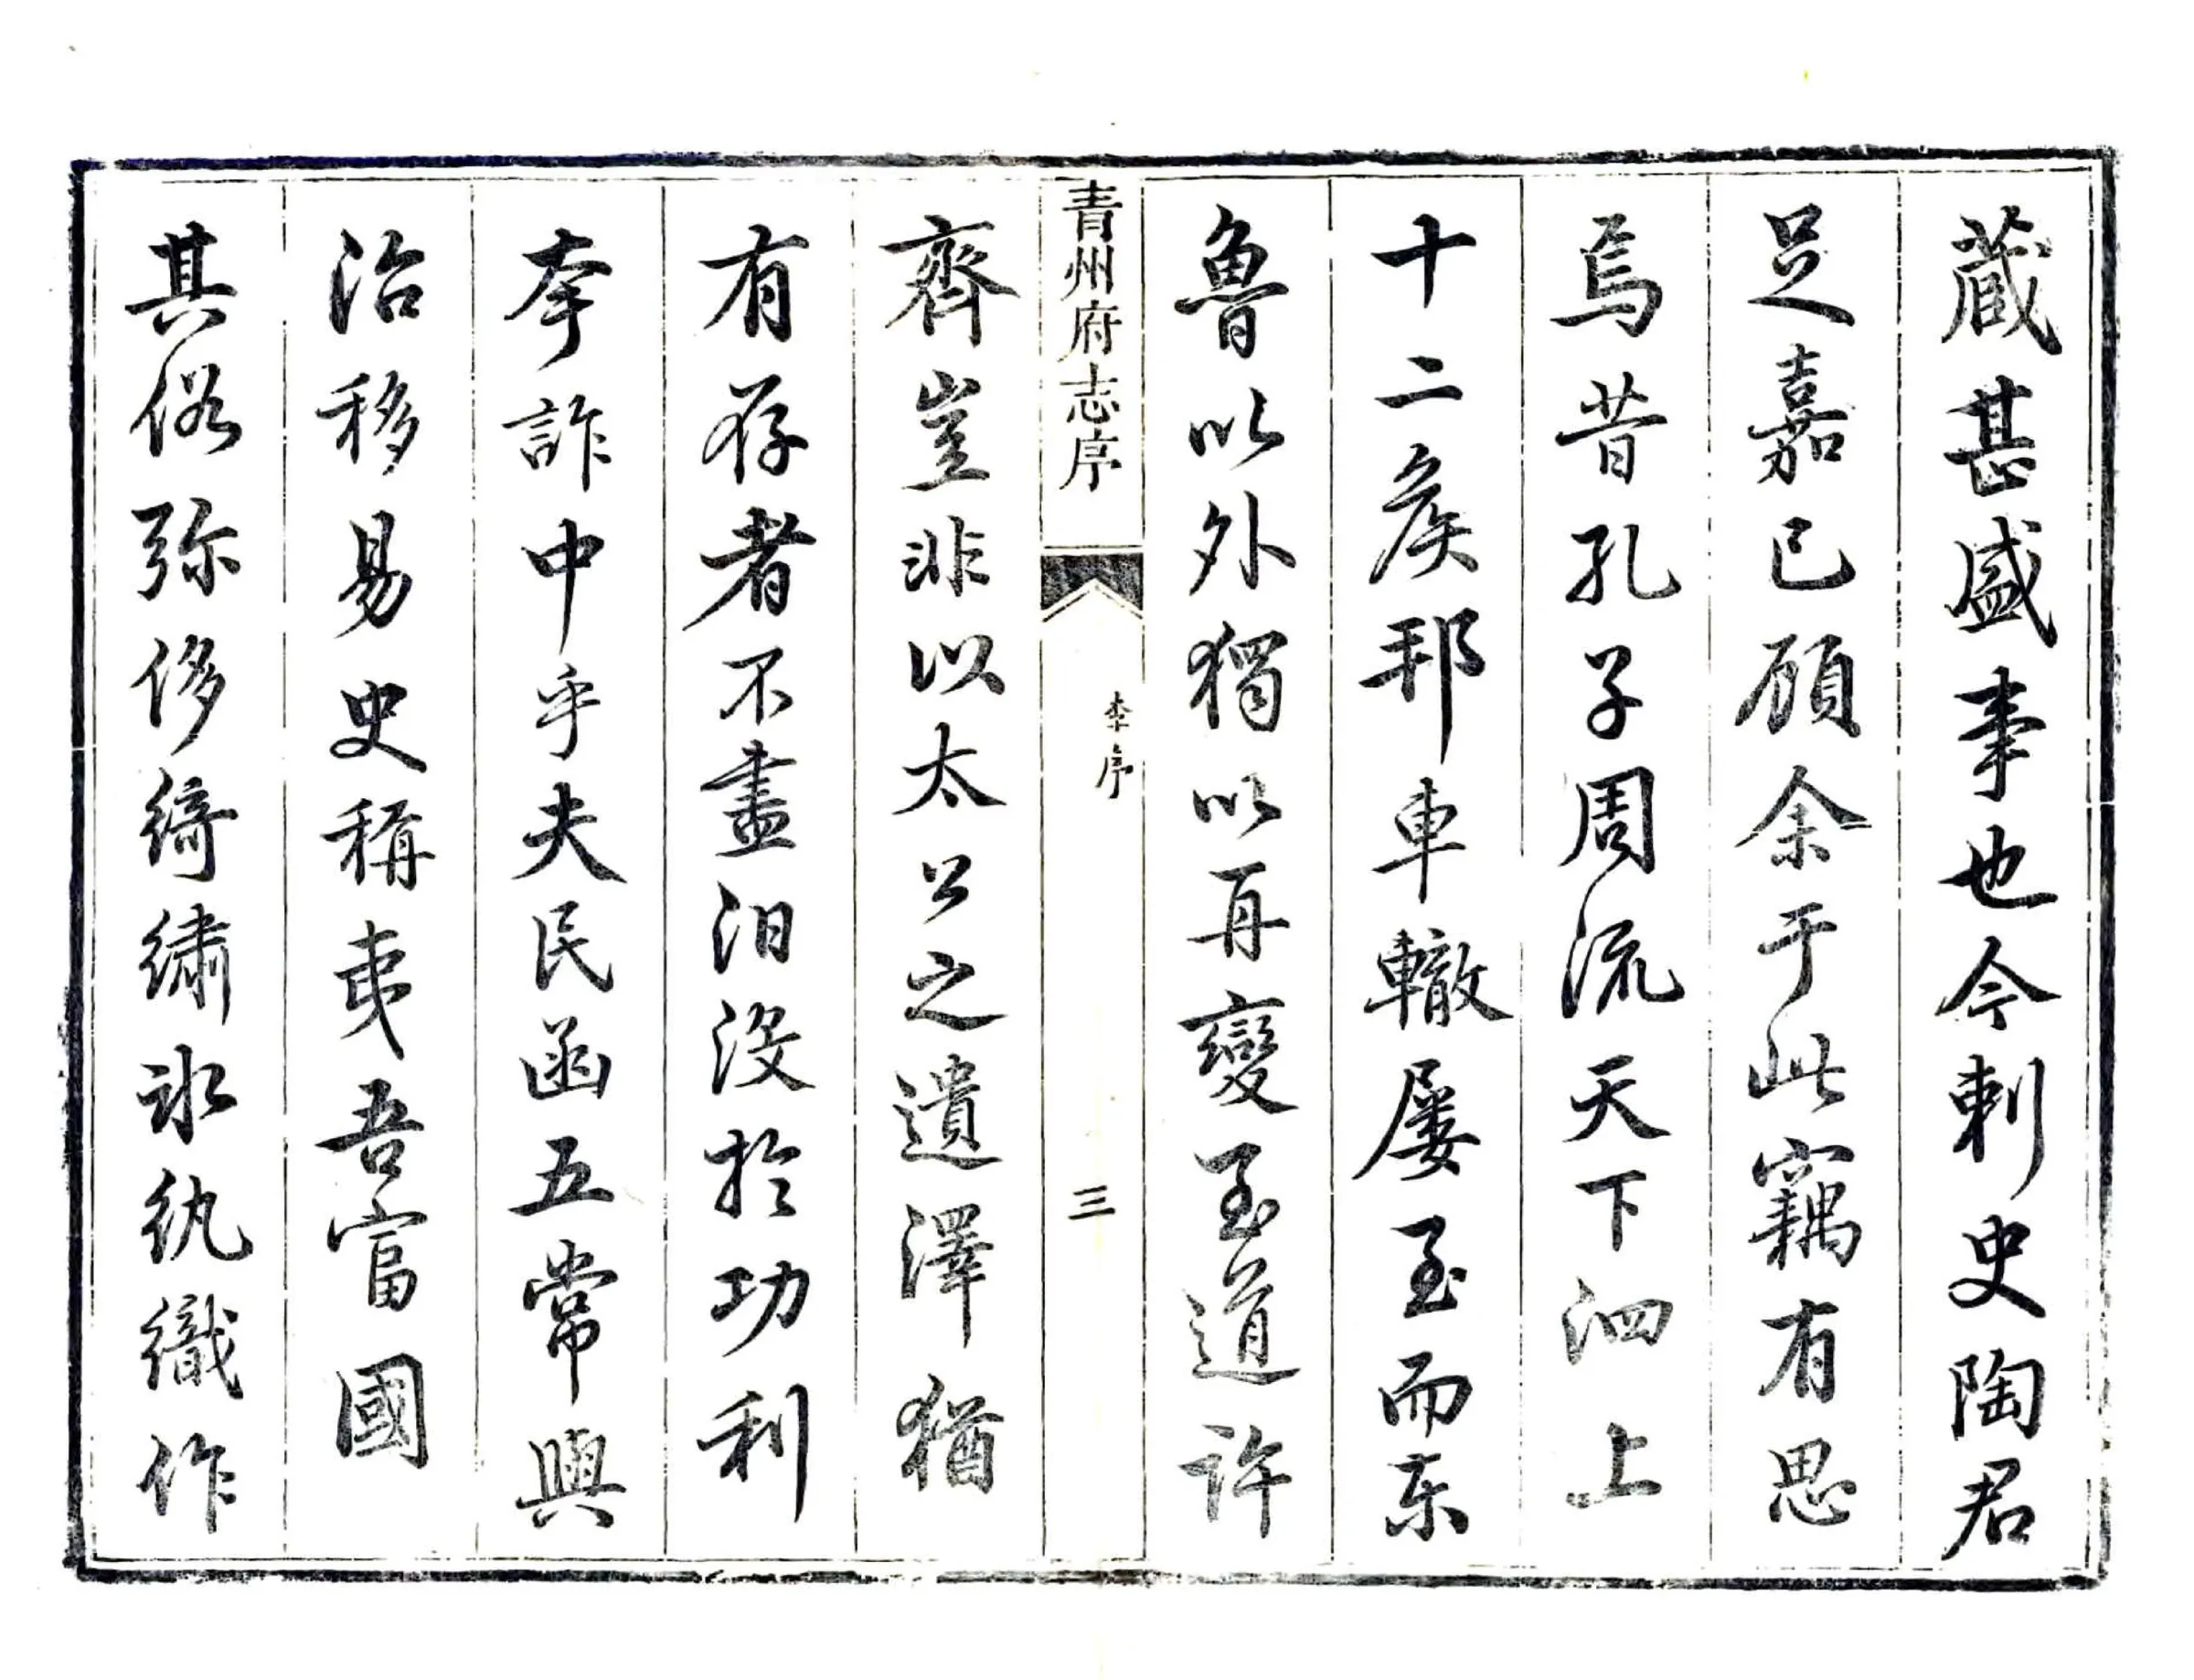 蕆甚盛事也今刺史陶君
足嘉已顧余于此竊有思
焉昔孔子周流天下泗上
十二矦邦車轍屢至而东
魯以外獨以再變至道許
青州府志序
李序
三
齊豈非以太公之遺澤猶
有存者不盡汨沒於功利
夸詐中乎夫民函五常與
治移易史稱夷吾富國
其俗弥侈綺繡冰紈織作